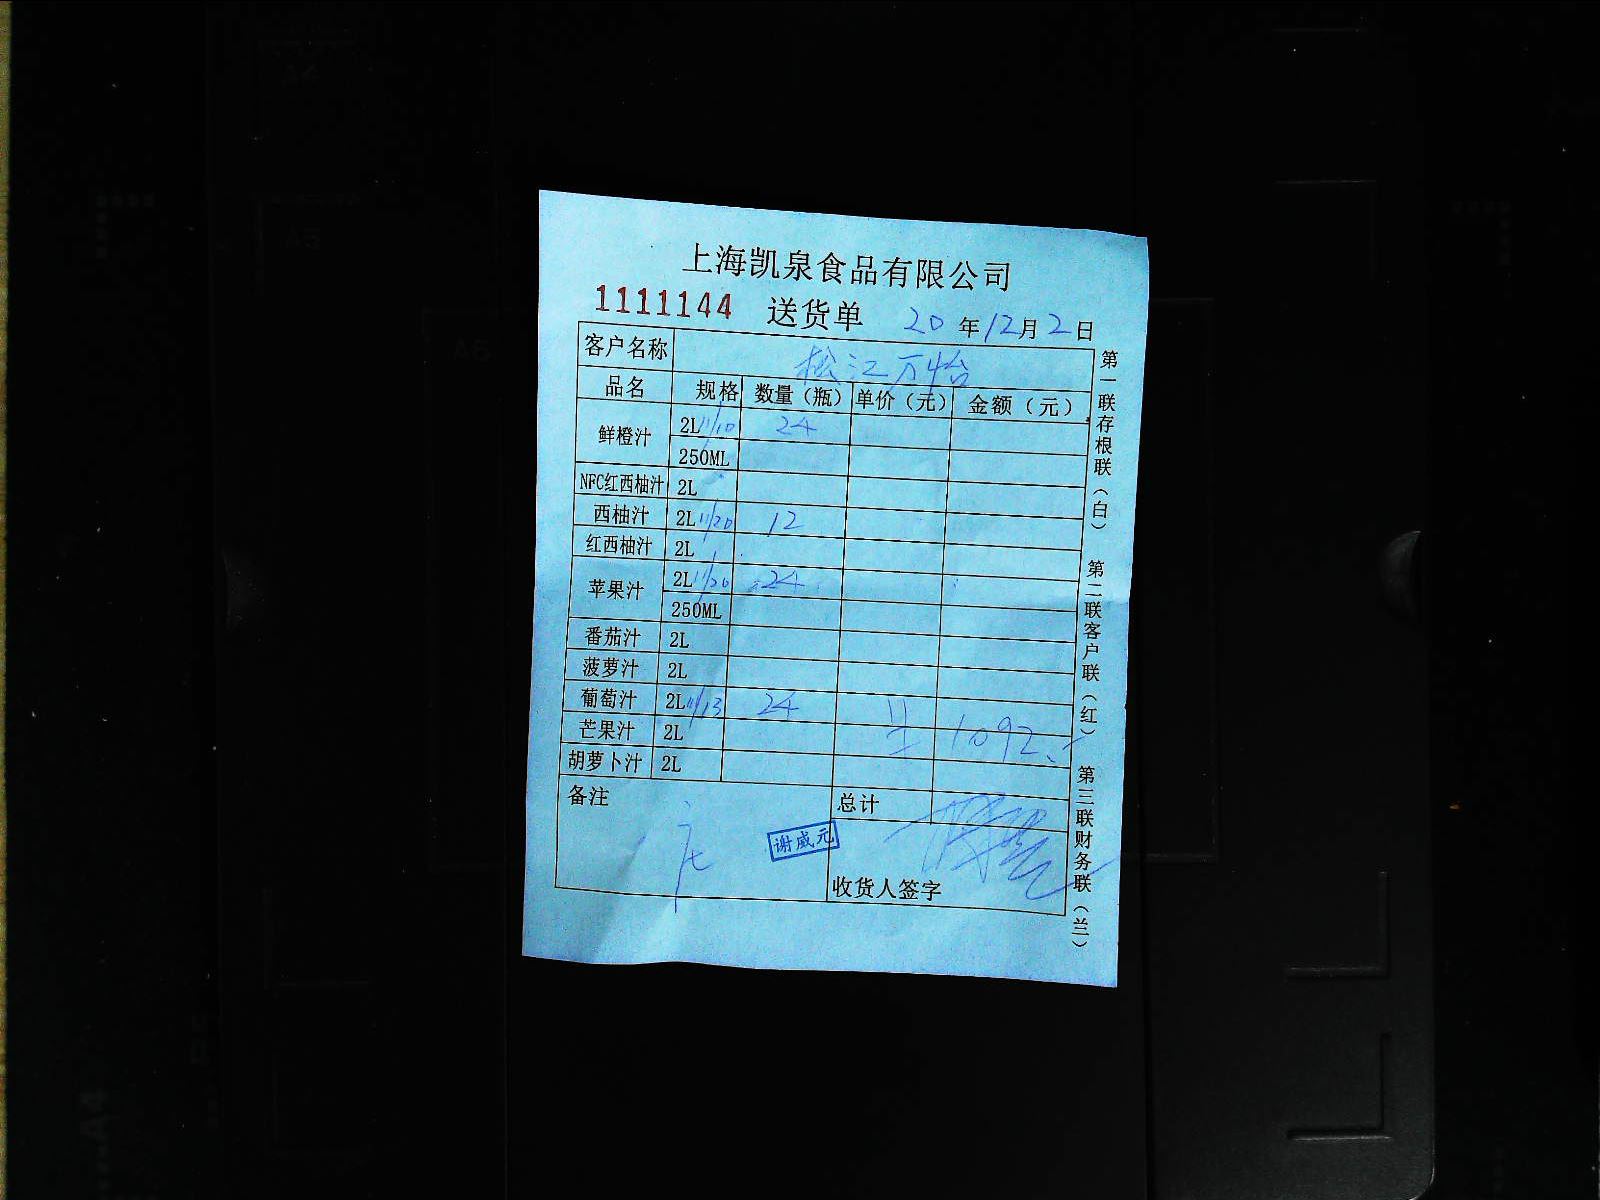 上海凯泉食品有限公司
1111144 送货单 20年12月2日
客户名称 松江万怡
品名 规格 数量（瓶） 单价（元） 金额（元）
鲜橙汁 2L 11/10 24
250ML
NFC红西柚汁 2L
西柚汁 2L 11/20 12
红西柚汁 2L
苹果汁 2L 11/26 24
250ML
番茄汁 2L
菠萝汁 2L
葡萄汁 2L 11/13 24
芒果汁 2L 1092
胡萝卜汁 2L
备注 总计
谢威元
收货人签字
第一联存根联（白）
第二联客户联（红）
第三联财务联（兰）
A4
A5
A6
A4